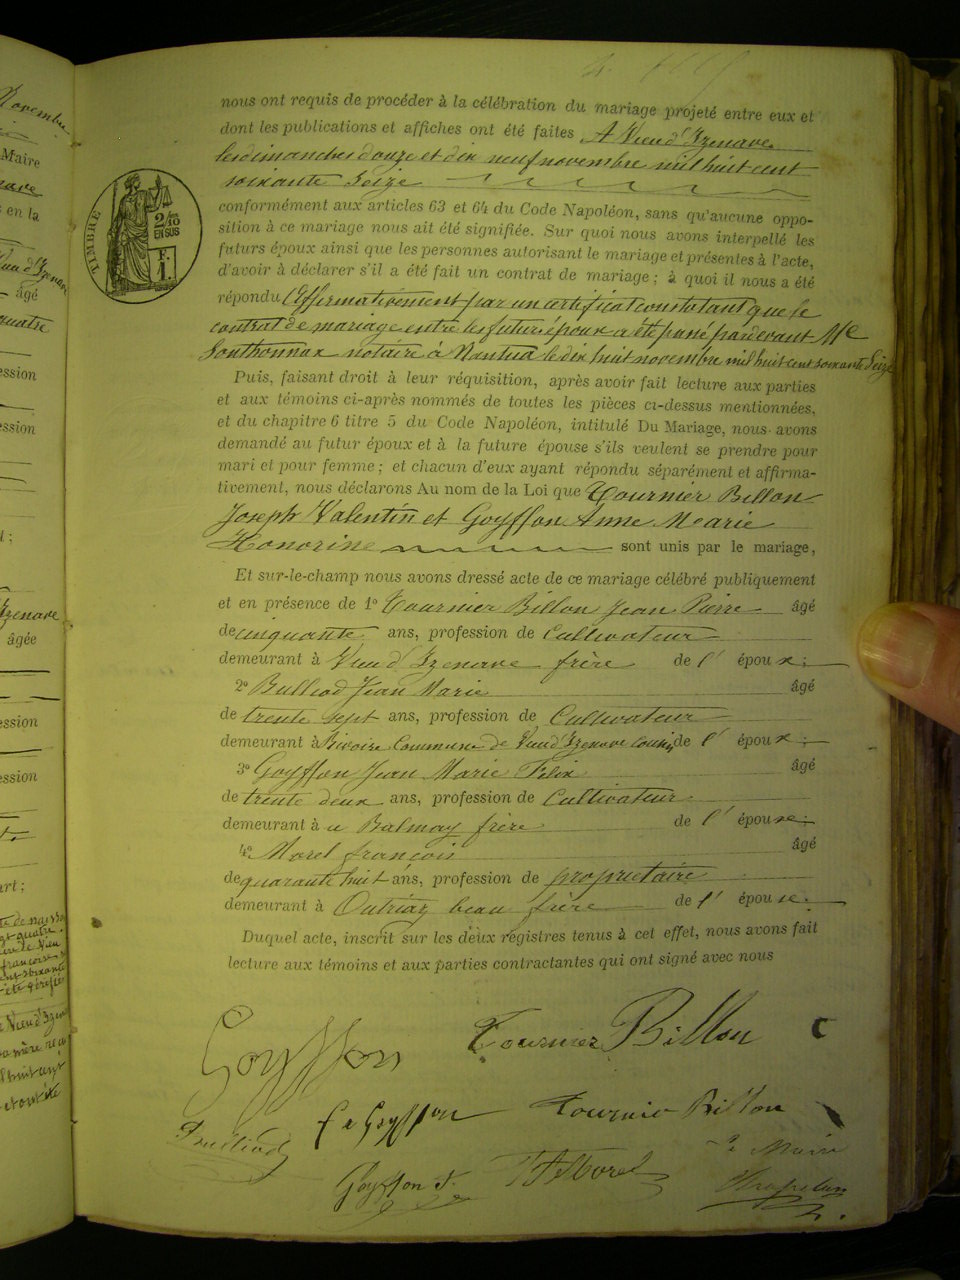 nous ont requis de procéder à la célébration du mariage projeté entre eux et
dont les publications et affiches ont été faites A Vieu d'Izenave
les dimanches douze et dix neuf novembre mil huit cent
soixante Seize
conformément aux articles 63 et 64 du Code Napoléon, sans qu'aucune oppo-
sition à ce mariage nous ait été signifiée. Sur quoi nous avons interpellé les
futurs époux ainsi que les personnes autorisant le mariage et présentes à l'acte,
d'avoir à déclarer s'il a été fait un contrat de mariage ; à quoi il nous a été
répondu Affirmativement par un certificat constatant que le
contrat de mariage entre les futurs époux a été passé pardevant Me
Sonthonnax notaire à Nantua le dix huit novembre mil huit cent soixante Seize
Puis, faisant droit à leur réquisition, après avoir fait lecture aux parties
et aux témoins ci-après nommés de toutes les pièces ci-dessus mentionnées,
et du chapitre 6 titre 5 du Code Napoléon, intitulé Du Mariage, nous avons
demandé au futur époux et à la future épouse s'ils veulent se prendre pour
mari et pour femme ; et chacun d'eux ayant répondu séparément et affirma-
tivement, nous déclarons Au nom de la Loi que Tournier Billon
Joseph Valentin et Goyffon Anne Marie
Honorine sont unis par le mariage,
Et sur-le-champ nous avons dressé acte de ce mariage célébré publiquement
et en présence de 1° Tournier Billon Jean Pierre âgé
de cinquante ans, profession de Cultivateur
demeurant à Vieu d'Izenave frère de l' époux ;
2° Bulliod Jean Marie âgé
de trente sept ans, profession de Cultivateur
demeurant à Bivoire Commune de Vieu d'Izenave cousin de l' époux ;
3° Goyffon Jean Marie Félix âgé
de trente deux ans, profession de Cultivateur
demeurant à u Balmay frère de l' épouse ;
4° Morel françois âgé
de quarante huit ans, profession de propriétaire
demeurant à Outriaz beau frère de l' épouse.
Duquel acte, inscrit sur les deux régistres tenus à cet effet, nous avons fait
lecture aux témoins et aux parties contractantes qui ont signé avec nous
Goyffon Tournier Billon
Goyffon Tournier Billon
Bulliod Goyffon F. Morel
Maire
TIMBRE
2/10
EN SUS
F.
1.
Novembre
Maire
en la
Vieu d'Izenave
âgé
quatre
Izenave
âgée